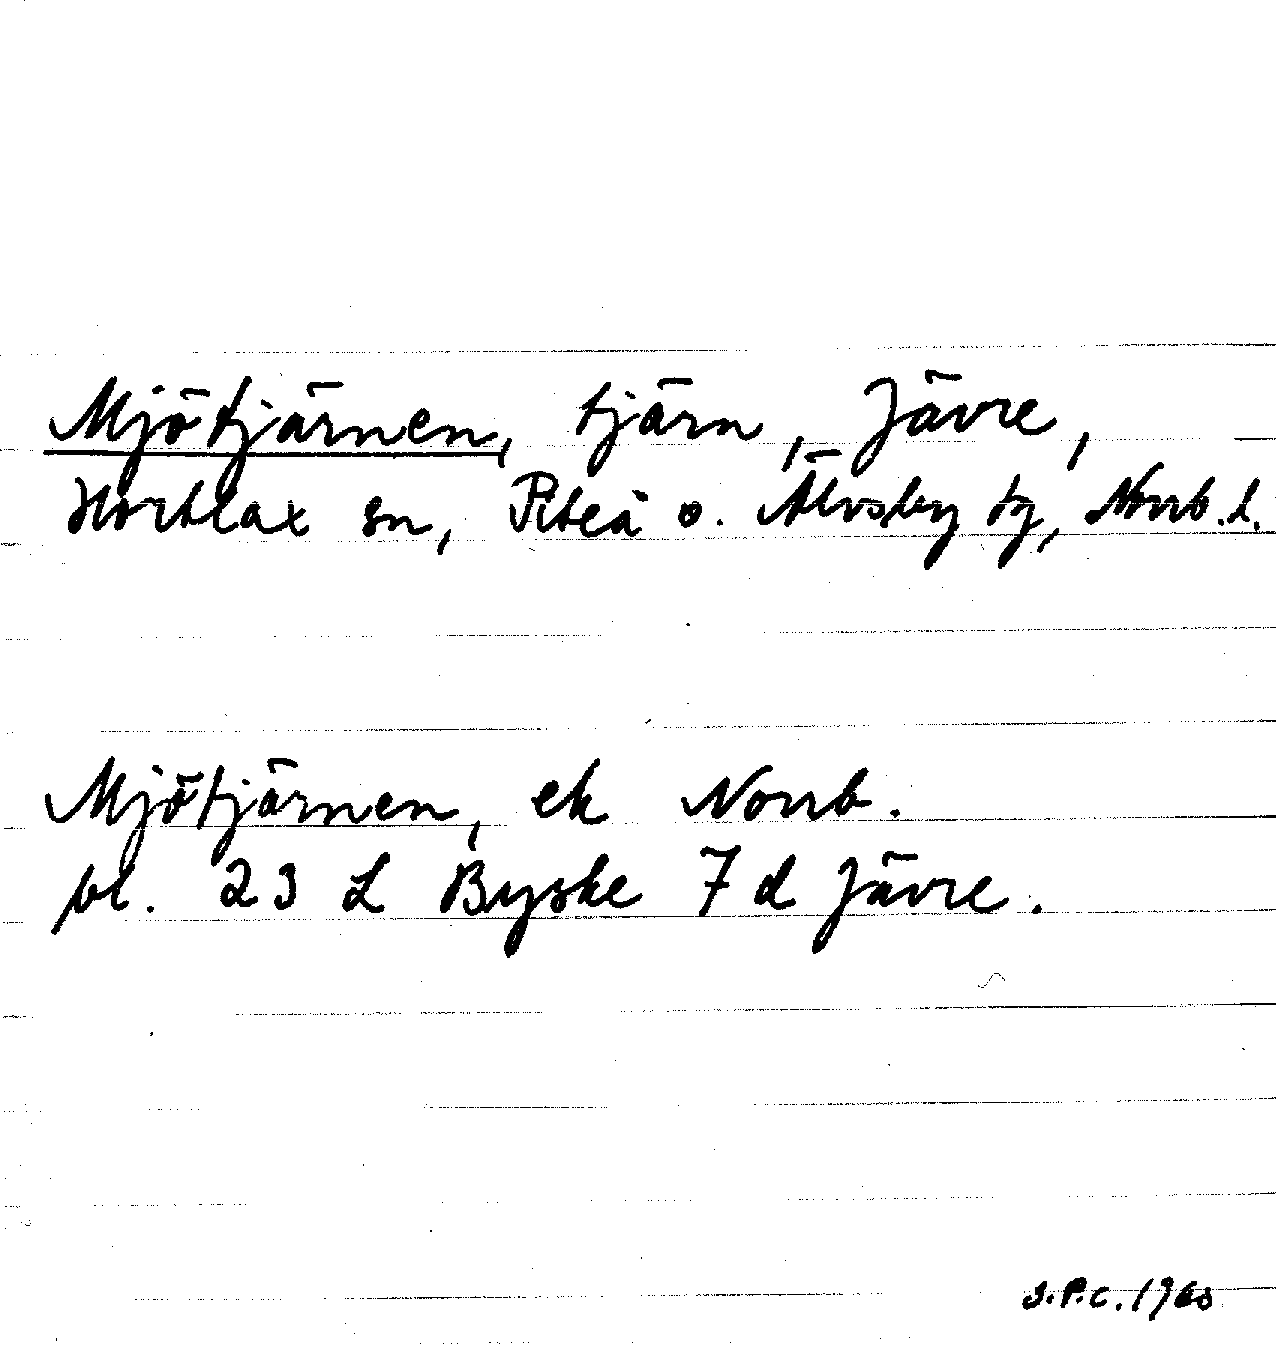 Mjötjärnen, tjärn, Jävre,
Hortlax sn, Piteå o. Älvsby tg, Norrb. l.
Mjötjärnen, ek Norrb.
bl. 23 L Byske 7 d Jävre.
S.P.C. 1960